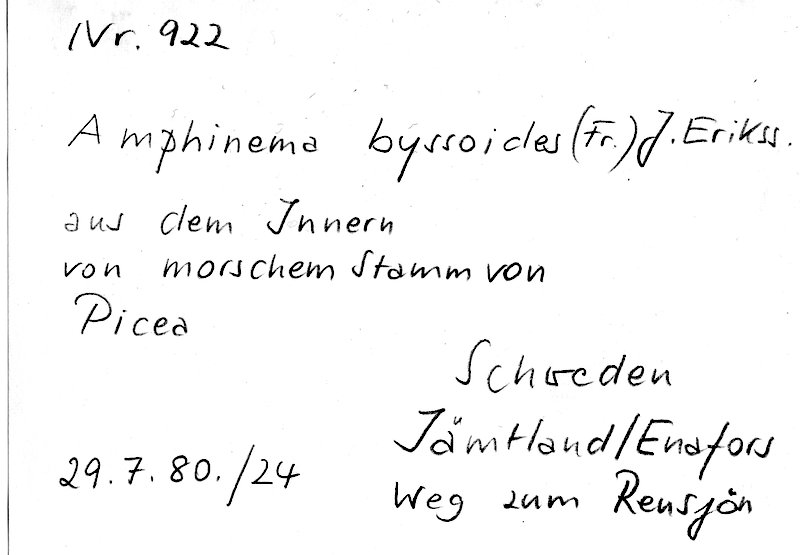 Nr. 922
Amphinema byssoides (Fr.) J. Erikss.
aus dem Innern
von morschem Stamm von
Picea
Schweden
Jämtland/Enafors
29.7.80./24
Weg zum Rensjön